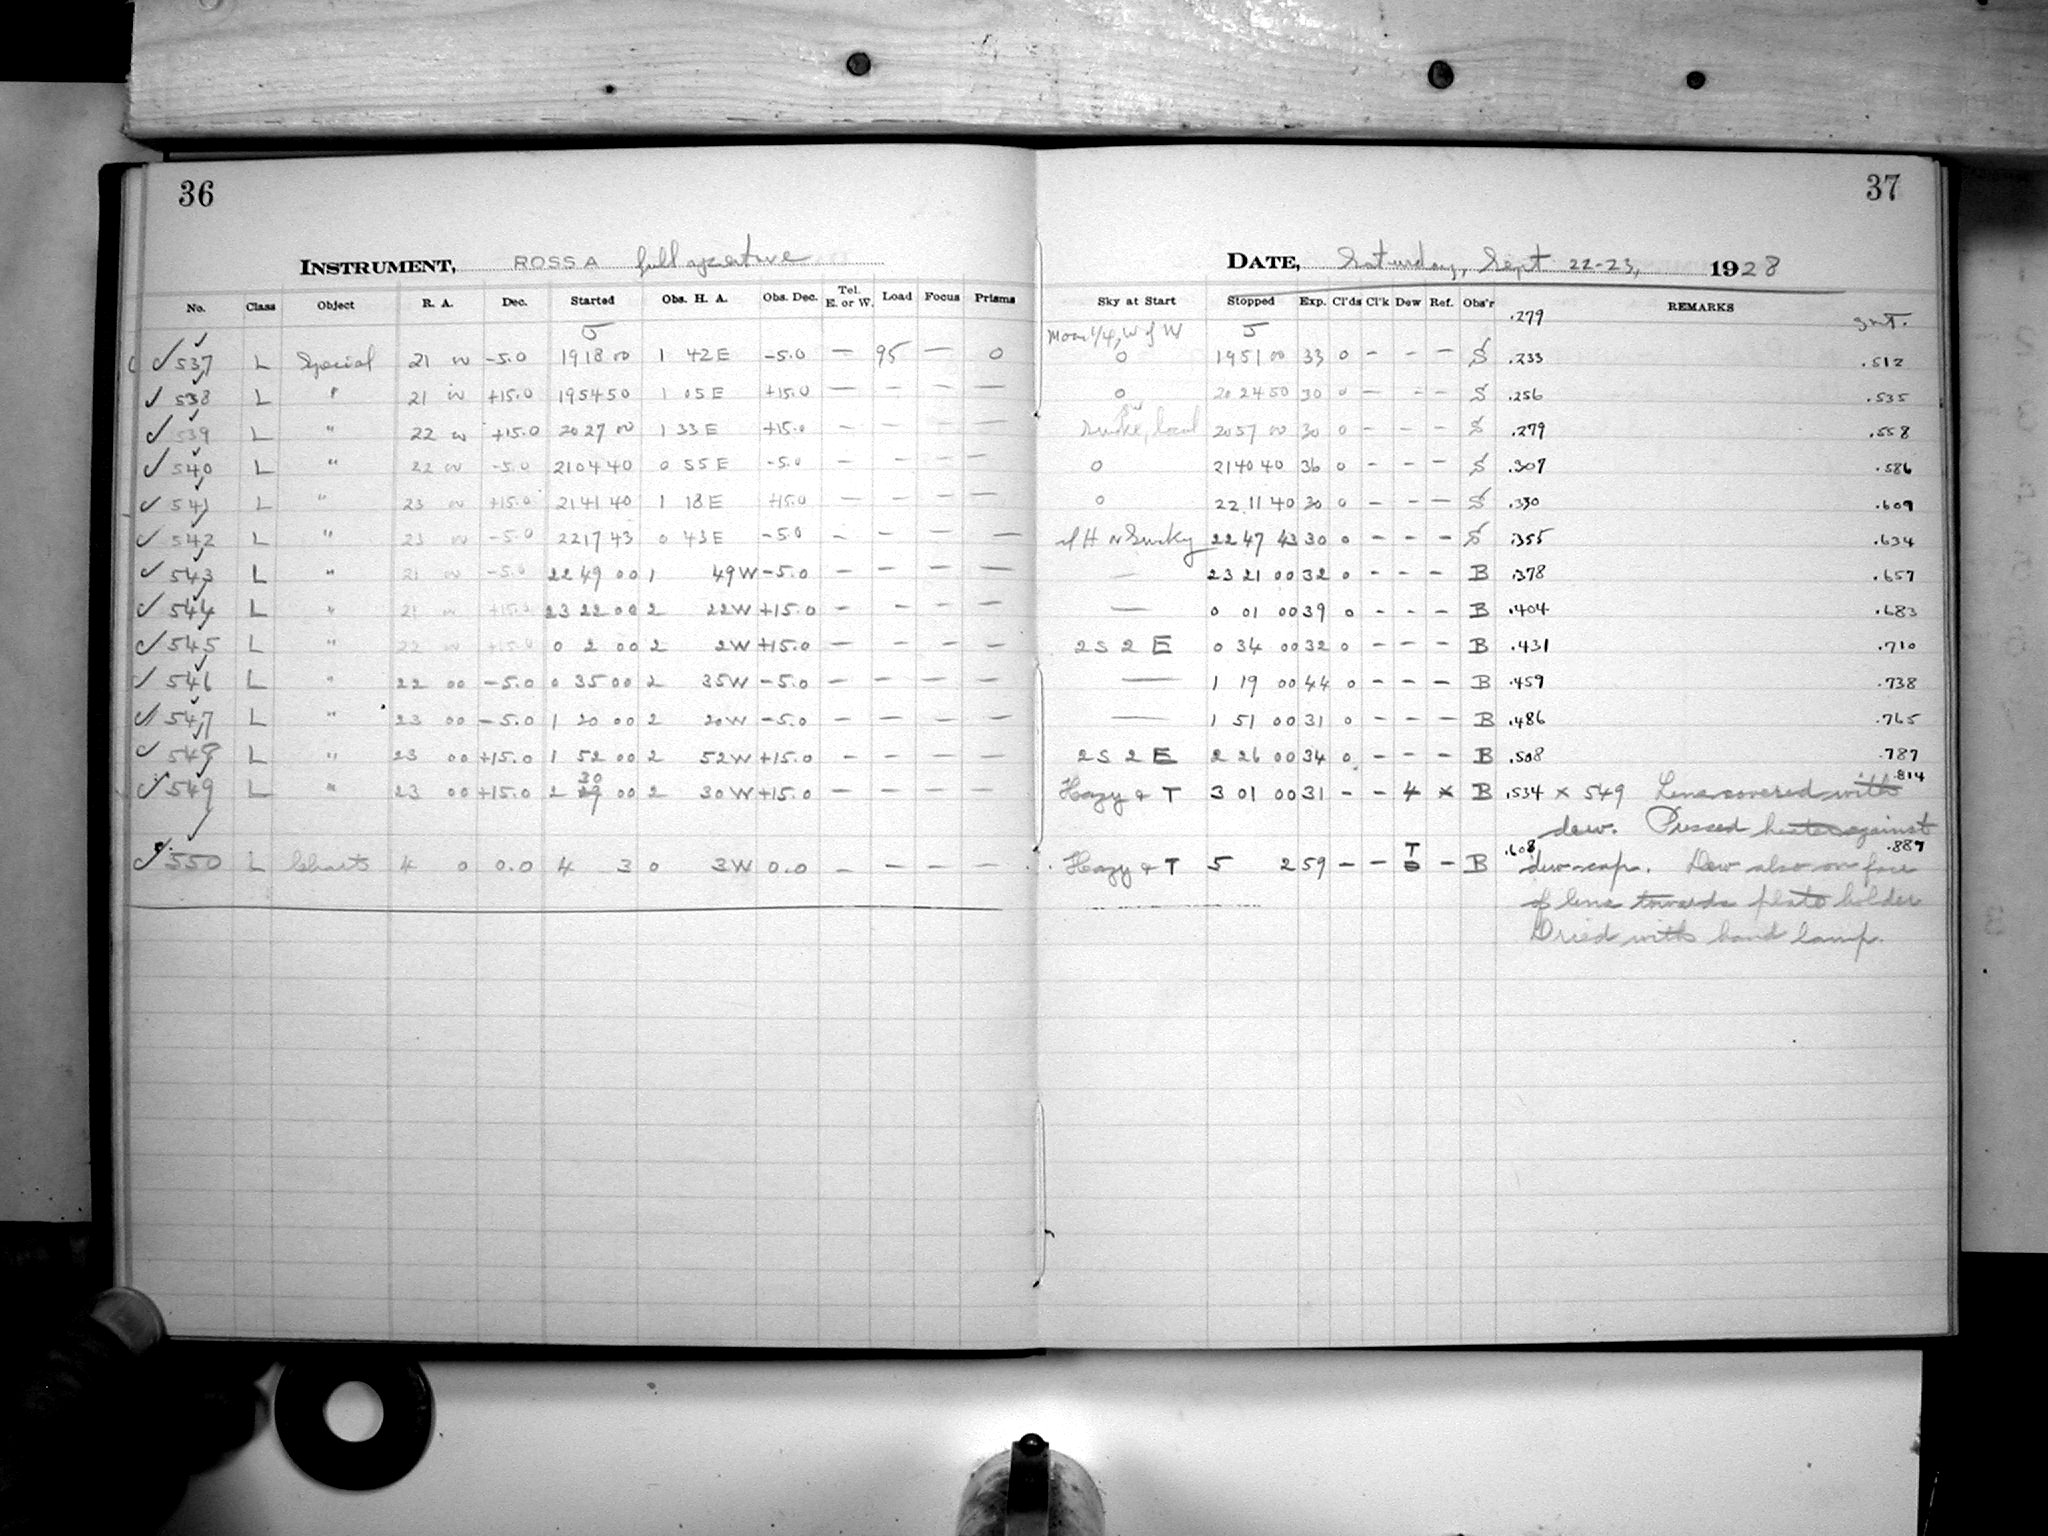 36
37
INSTRUMENT, ROSS A full aperture
DATE, Saturday, Sept 22-23, 1928
No. Class Object R. A. Dec. Started Obs. H. A. Obs. Dec. Tel. E. or W. Load Focus Prisms Sky at Start Stopped Exp. Cl'ds Cl'k Dew Ref. Obs'r REMARKS
5 Moon 1/4, W of W 5 .279 GMT.
✓ 537 L Special 21 00 -5.0 19 18 00 1 42 E -5.0 — 95 — 0 0 19 51 00 33 0 - - - S .233 .512
✓ 538 L " 21 00 +15.0 19 54 50 1 05 E +15.0 — — — — 0 20 24 50 30 0 - - - S .256 .535
✓ 539 L " 22 00 +15.0 20 27 00 1 33 E +15.0 — — — — local 20 57 00 30 0 - - - S .279 .558
✓ 540 L " 22 00 -5.0 21 04 40 0 55 E -5.0 — — — — 0 21 40 40 36 0 - - - S .307 .586
✓ 541 L " 23 00 +15.0 21 41 40 1 18 E +15.0 — — — — 0 22 11 40 30 0 - - - S .330 .609
✓ 542 L " 23 00 -5.0 22 17 43 0 43 E -5.0 — — — — 22 47 43 30 0 - - - S .355 .634
✓ 543 L " 21 00 -5.0 22 49 00 1 49 W -5.0 — — — — — 23 21 00 32 0 - - - B .378 .657
✓ 544 L " 21 00 +15.0 23 22 00 2 22 W +15.0 — — — — — 0 01 00 39 0 - - - B .404 .683
✓ 545 L " 22 00 +15.0 0 2 00 2 2 W +15.0 — — — — 2 S 2 E 0 34 00 32 0 - - - B .431 .710
✓ 546 L " 22 00 -5.0 0 35 00 2 35 W -5.0 — — — — — 1 19 00 44 0 - - - B .459 .738
✓ 547 L " 23 00 -5.0 1 20 00 2 20 W -5.0 — — — — — 1 51 00 31 0 - - - B .486 .765
✓ 548 L " 23 00 +15.0 1 52 00 2 52 W +15.0 — — — — 2 S 2 E 2 26 00 34 0 - - - B .508 .787
30 .814
✓ 549 L " 23 00 +15.0 2 29 00 2 30 W +15.0 — — — — Hazy & T 3 01 00 31 - - 4 x B .534 x 549 Lens covered with
dew. Pressed heater against
T .608 .887
✓ 550 L Charts 4 0 0.0 4 3 0 3 W 0.0 — — — — Hazy & T 5 2 59 - - 0 - B dew cap. Dew also on face
of lens towards plate holder
Dried with hand lamp.